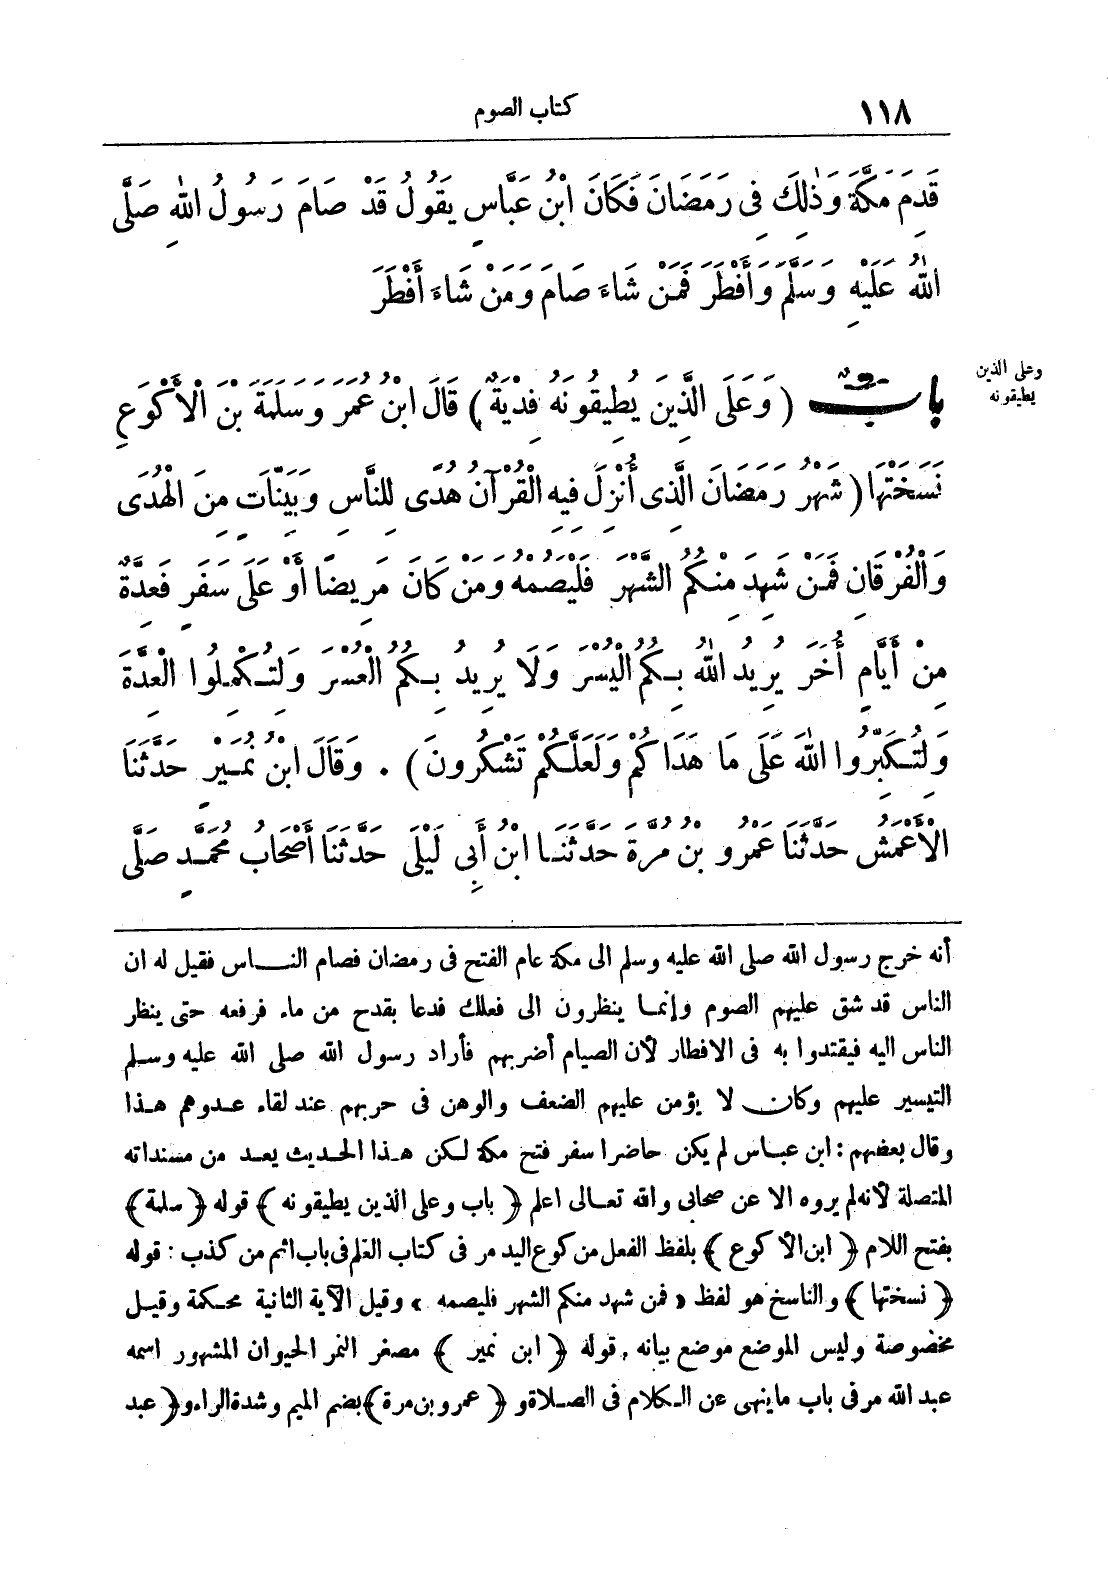 ١١٨
كتاب الصوم
قَدِمَ مَكَّةَ وَذٰلِكَ فِى رَمَضَانَ فَكَانَ ابْنُ عَبَّاسٍ يَقُولُ قَدْ صَامَ رَسُولُ اللهِ صَلَّى
اللهُ عَلَيْهِ وَسَلَّمَ وَأَفْطَرَ فَمَنْ شَاءَ صَامَ وَمَنْ شَاءَ أَفْطَرَ
وعلى الذين
يطيقونه
بابٌ (وَعَلَى الَّذِينَ يُطِيقُونَهُ فِدْيَةٌ) قَالَ ابْنُ عُمَرَ وَسَلَمَةَ بْنَ الْأَكْوَعِ
نَسَخَتْهَا (شَهْرُ رَمَضَانَ الَّذِى أُنْزِلَ فِيهِ الْقُرْآنُ هُدًى لِلنَّاسِ وَبَيِّنَاتٍ مِنَ الْهُدَى
وَالْفُرْقَانِ فَمَنْ شَهِدَ مِنْكُمُ الشَّهْرَ فَلْيَصُمْهُ وَمَنْ كَانَ مَرِيضًا أَوْ عَلَى سَفَرٍ فَعِدَّةٌ
مِنْ أَيَّامٍ أُخَرَ يُرِيدُ اللهُ بِكُمُ الْيُسْرَ وَلَا يُرِيدُ بِكُمُ الْعُسْرَ وَلِتُكْمِلُوا الْعِدَّةَ
وَلِتُكَبِّرُوا اللهَ عَلَى مَا هَدَاكُمْ وَلَعَلَّكُمْ تَشْكُرُونَ) . وَقَالَ ابْنُ نُمَيْرٍ حَدَّثَنَا
الْأَعْمَشُ حَدَّثَنَا عَمْرُو بْنُ مُرَّةَ حَدَّثَنَا ابْنُ أَبِى لَيْلَى حَدَّثَنَا أَصْحَابُ مُحَمَّدٍ صَلَّى
أنه خرج رسول الله صلى الله عليه وسلم الى مكة عام الفتح فى رمضان فصام الناس فقيل له ان
الناس قد شق عليهم الصوم وإنما ينظرون الى فعلك فدعا بقدح من ماء فرفعه حتى ينظر
الناس اليه فيقتدوا به فى الافطار لأن الصيام أضر بهم فأراد رسول الله صلى الله عليه وسلم
التيسير عليهم وكان لا يؤمن عليهم الضعف والوهن فى حربهم عند لقاء عدوهم هذا
وقال بعضهم : ابن عباس لم يكن حاضرا سفر فتح مكة لكن هذا الحديث يعد من مسنداته
المتصلة لأنه لم يروه الا عن صحابى والله تعالى اعلم ﴿باب وعلى الذين يطيقونه﴾ قوله ﴿سلمة﴾
بفتح اللام ﴿ابن الأكوع﴾ بلفظ الفعل من كوع اليد مر فى كتاب العلم فى باب اثم من كذب : قوله
﴿نسختها﴾ والناسخ هو لفظ « فمن شهد منكم الشهر فليصمه » وقيل الآية الثانية محكمة وقيل
مخصوصة وليس الموضع موضع بيانه , قوله ﴿ابن نمير﴾ مصغر النمر الحيوان المشهور اسمه
عبد الله مر فى باب ما ينهى عن الكلام فى الصلاة و ﴿عمرو بن مرة﴾ بضم الميم وشدة الراء و﴿عبد